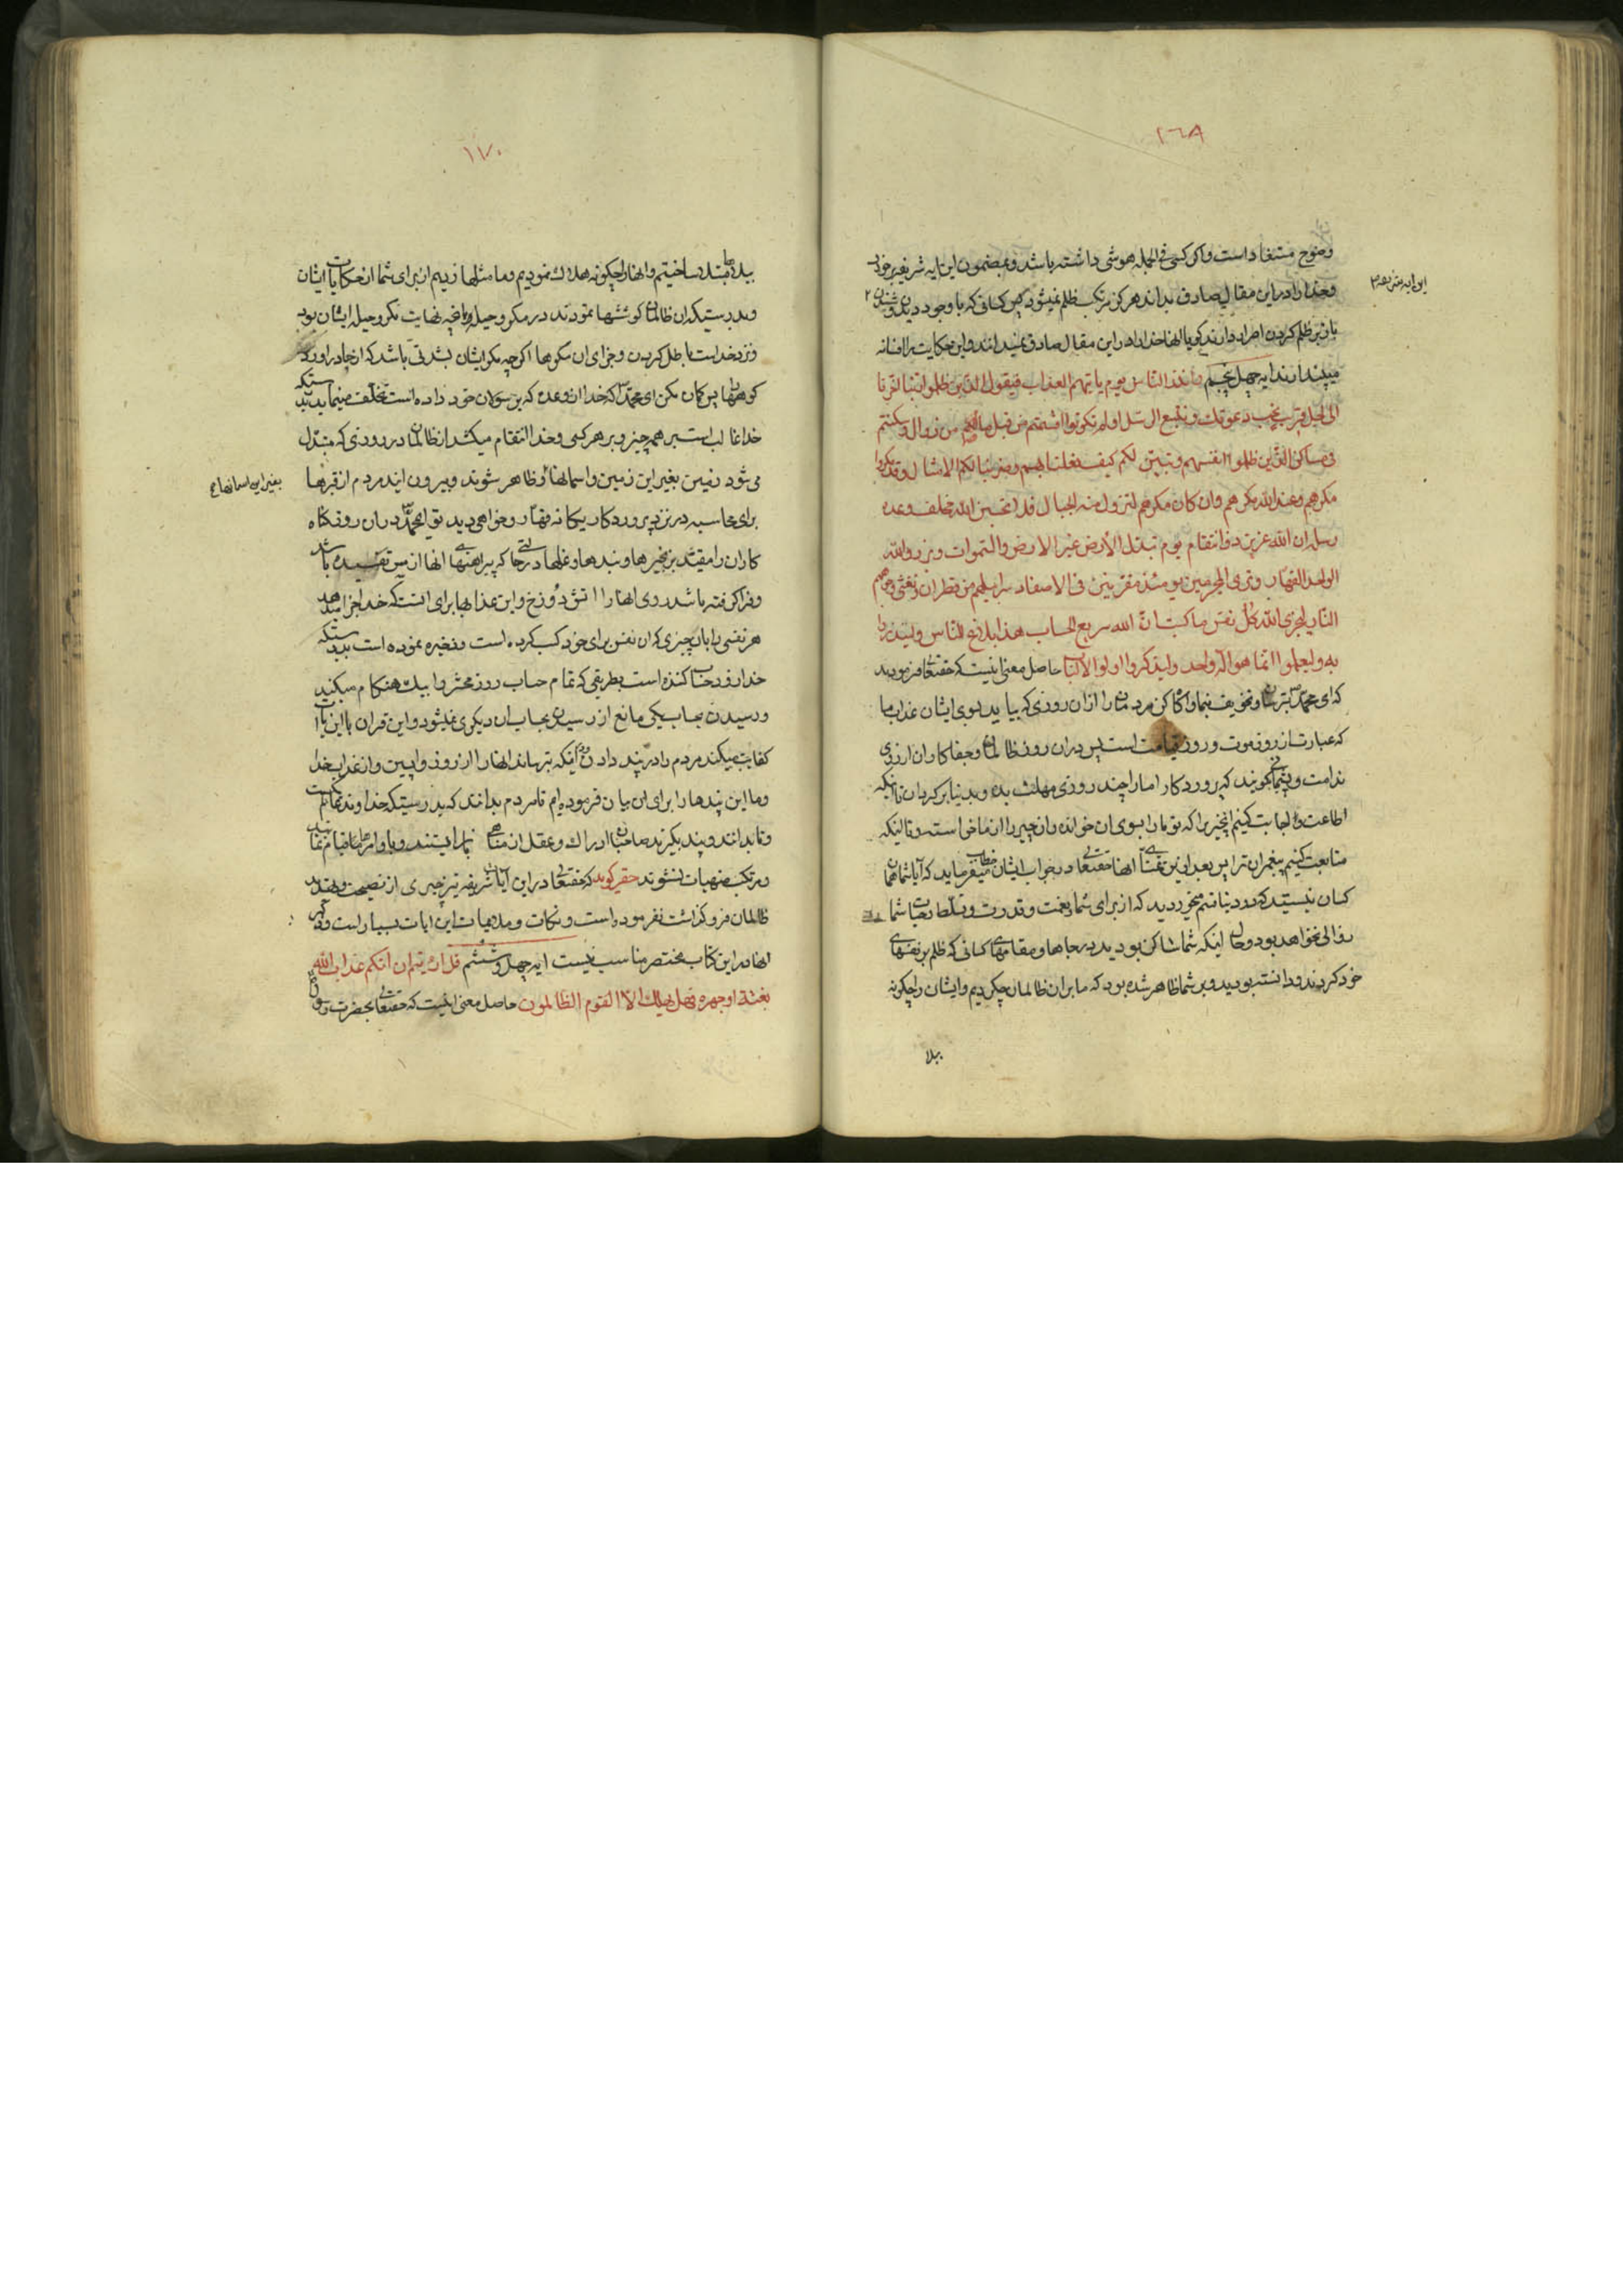 ٢٦٨
وضوح مستفاد است و اگر کسی فی الجمله هوشی داشته باشد و بمضمون این ایه شریفه برخورد
و خدا را در این مقال صادق بداند هرگز مرتکب ظلم نمیشود پس کسانی که با وجود دیدن و شنیدن
باز بر ظلم کردن اصرار دارند گویا انها خدا را در این مقال صادق نمیدانند و این حکایت را افسانه
میپندارند ایه چهل پنجم و انذر الناس یوم یاتیهم العذاب فیقول الذین ظلموا ربنا اخرنا
الی اجل قریب نجب دعوتک و نتبع الرسل اولم تکونوا اقسمتم من قبل مالکم من زوال و سکنتم
فی مساکن الذین ظلموا انفسهم و تبین لکم کیف فعلنا بهم و ضربنا لکم الامثال و قد مکروا
مکرهم و عند الله مکرهم و ان کان مکرهم لتزول منه الجبال فلا تحسبن الله مخلف وعده
رسله ان الله عزیز ذو انتقام یوم تبدل الارض غیر الارض و السموات و برزوا لله
الواحد القهار و تری المجرمین یومئذ مقرنین فی الاصفاد سرابیلهم من قطران و تغشی وجوههم
النار لیجزی الله کل نفس ما کسبت ان الله سریع الحساب هذا بلاغ للناس و لینذروا
به و لیعلموا انما هو اله واحد و لیذکر اولوا الالباب حاصل معنی اینست که حقتعالی فرمودند
که ای محمد بترسان و تخویف بنما و اگاه کن مردمان را از ان روزی که بیاید بسوی ایشان عذاب ما
که عبارت از روز موت و روز قیامت است پس در ان روز ظالمان و جفاکاران از روی
ندامت و پشیمانی گویند که پروردگارا ما را چند روزی مهلت بده و بدنیا برگردان تا انکه
اطاعت و اجابت کنیم انچیز را که تو ما را بسوی ان خوانده و ان چیز را از ما خواسته و تا اینکه
متابعت کنیم پیغمبران ترا پس بعد از این تمنای انها حقتعالی در جواب ایشان میفرماید که آیا شما همان
کسان نیستید که در دنیا قسم میخوردید که از برای شما نعمت و قدرت و تسلط و حیات شما
زوالی نخواهد بود و حال اینکه شما ساکن بودید در جاها و مقامهای کسانی که ظلم بر نفسهای
خود کردند و دانسته بودید و بر شما ظاهر شده بود که ما بر ان ظالمان چه کردیم و ایشان را چگونه
ببلا
١٧٠
ببلاها مبتلا ساختیم و انها را چگونه هلاک نمودیم و ما مثلها زدیم از برای شما از حکایات ایشان
و بدرستیکه ان ظالمان کوششها نمودند در مکر و حیله و انچه نهایت مکر و حیله ایشان بود
و نزد خداست باطل کردن و جزای ان مکرها اگرچه مکر ایشان بشدتی باشد که از جا دراورد
کوهها را پس گمان مکن ای محمد که خدا از وعده که برسولان خود داده است تخلف مینماید بدرستیکه
خدا غالب است بر همه چیز و بر هر کسی و خدا انتقام میکشد از ظالمان در روزی که مبدل
می شود زمین بغیر این زمین و اسمانها و ظاهر شوند و بیرون ایند مردم از قبرها
برای محاسبه در نزد پروردگار یگانه قهار و خواهی دید تو ای محمد در ان روز گناه
کاران را مقید بزنجیرها و بندها و غلها در حالتی که پیراهنهای انها از مس تفتیده باشد
و فرا گرفته باشد روی انها را اتش دوزخ و این عذابها برای انست که خدا جزا میدهد
هر نفسی را بان چیزی که ان نفس برای خود کسب کرده است و ذخیره نموده است بدرستیکه
خدا زود حساب کننده است بطریقی که تمام حساب روز محشر را بیک هنگام میکنید
و رسیدن بحساب یکی مانع از رسیدن بحساب ان دیگری نمیشود و این قران با این آیات
کفایت میکند مردم را در پند دادن و اینکه بترساند انها را از روز واپسین و از عذاب خدا
و ما این پندها را برای ان بیان فرموده ایم تا مردم بدانند که بدرستیکه خداوند عالم یکیست
و تا بدانند و پند بگیرند صاحبان ادراک و عقل از مناهی باز ایستند و باوامر ما قیام نمایند
و مرتکب منهیات نشوند حقیر گوید که حقتعالی در این آیات شریفه نیز چیزی از نصیحت و تهدید
ظالمان فرو گذاشت نفرموده است و نکات و ملایمات این ایات بسیار است و ذکر
انها در این کتاب مختصر مناسب نیست ایه چهل و ششم قل ارایتم ان اتکم عذاب الله
بغتة او جهرة فهل یهلک الا القوم الظالمون حاصل معنی اینست که حقتعالی بحضرت رسول